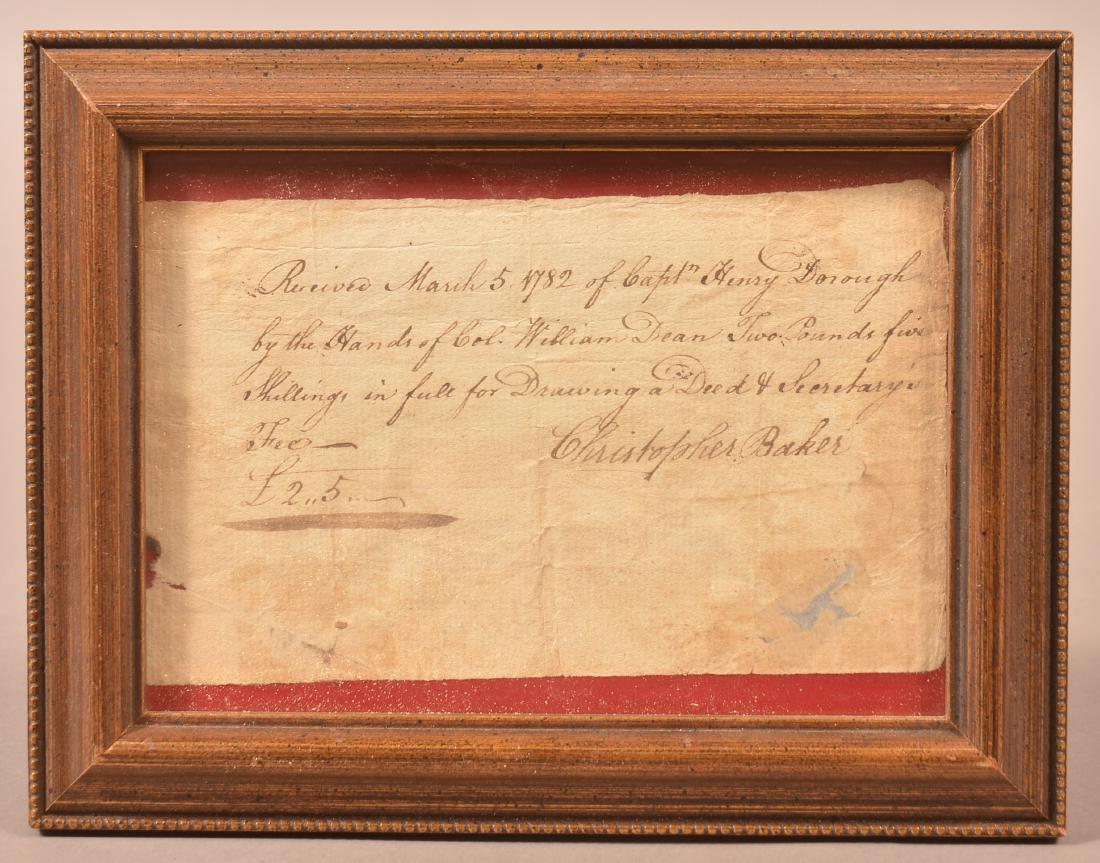 Received March 5. 1782 of Captn Henry Dorough
by the Hands of Col. William Dean Two Pounds five
Shillings in full for Drawing a Deed & Secretary's
Fees —
£ 2,, 5 ,, —
Christopher Baker